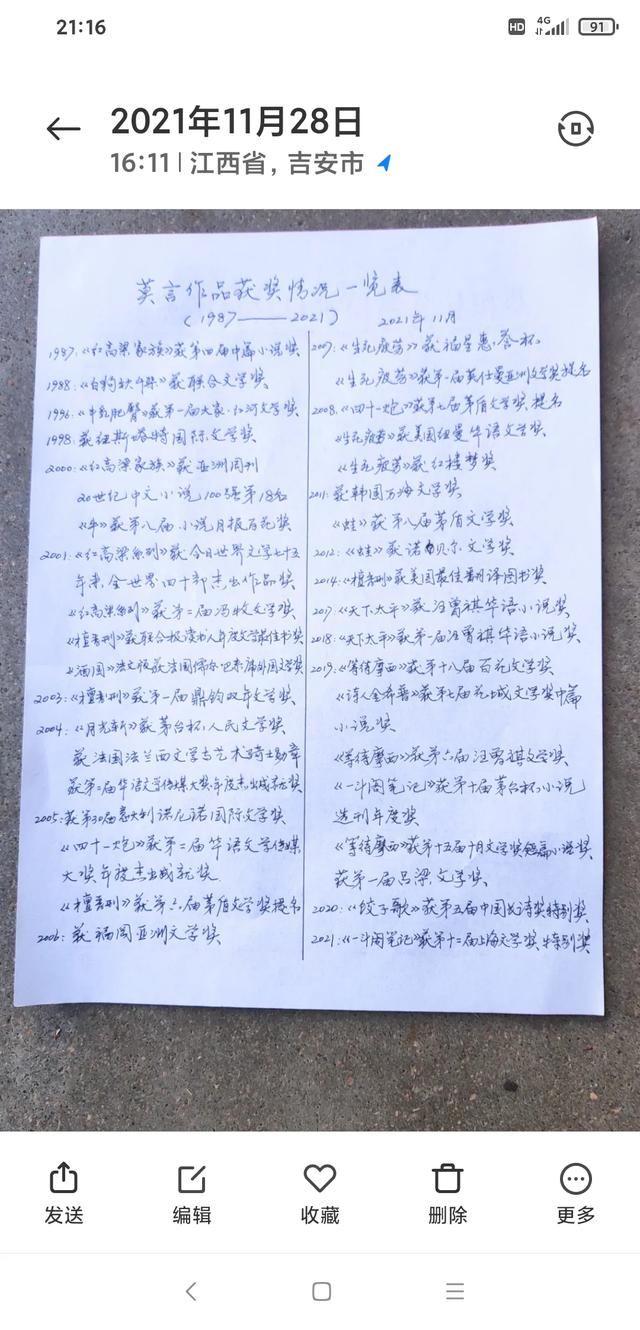 21:16
HD 4G 91
2021年11月28日
16:11 | 江西省, 吉安市
莫言作品获奖情况一览表
(1987——2021) 2021年11月
1987:《红高粱家族》获第四届中篇小说奖
1988:《白狗秋千架》获联合文学奖
1996:《丰乳肥臀》获第一届大家·红河文学奖
1998: 获纽斯塔特国际文学奖
2000:《红高粱家族》获亚洲周刊
20世纪中文小说100强第18名
《牛》获第八届小说月报百花奖
2001:《红高粱系列》获今日世界文学七十五
年来全世界四十部杰出作品奖
《红高粱系列》获第二届冯牧文学奖
《檀香刑》获联合报读书人年度文学最佳书奖
《酒国》法文版获法国儒尔·巴泰庸外国文学奖
2003:《檀香刑》获第一届鼎钧双年文学奖
2004:《月光斩》获茅台杯人民文学奖
获法国法兰西文学与艺术骑士勋章
获第二届华语文学传媒大奖年度杰出成就奖
2005: 获第30届意大利诺尼诺国际文学奖
《四十一炮》获第二届华语文学传媒
大奖年度杰出成就奖
《檀香刑》获第六届茅盾文学奖提名
2006: 获福冈亚洲文学奖
2007:《生死疲劳》获福星惠誉杯
《生死疲劳》获第一届英仕曼亚洲文学奖提名
2008:《四十一炮》获第七届茅盾文学奖提名
《生死疲劳》获美国纽曼华语文学奖
《生死疲劳》获红楼梦奖
2011: 获韩国万海文学奖
《蛙》获第八届茅盾文学奖
2012:《蛙》获诺贝尔文学奖
2014:《檀香刑》获美国最佳翻译图书奖
2017:《天下太平》获汪曾祺华语小说奖
2018:《天下太平》获第一届汪曾祺华语小说奖
2019:《等待摩西》获第十八届百花文学奖
《诗人金希普》获第七届花城文学奖中篇
小说奖
《等待摩西》获第六届汪曾祺文学奖
《一斗阁笔记》获第十届茅台杯小说
选刊年度奖
《等待摩西》获第十五届十月文学奖短篇小说奖
获第一届吕梁文学奖
2020:《饺子歌》获第五届中国长诗奖特别奖
2021:《一斗阁笔记》获第十二届上海文学奖特别奖
发送 编辑 收藏 删除 更多